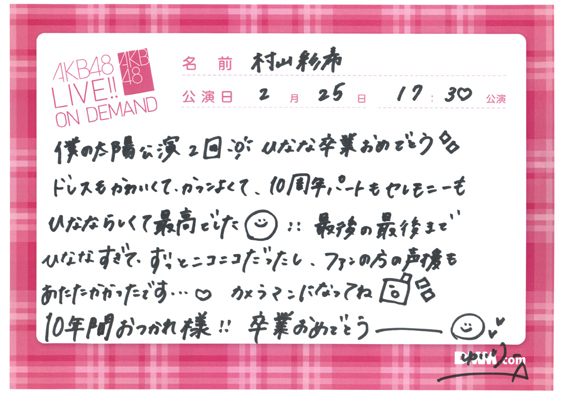 AKB48
LIVE!!
ON DEMAND
AKB
48
名 前 村山彩希
公演日 2 月 25 日 17:30 公演
僕の太陽公演2回 ひなな卒業おめでとう
ドレスもかわいくて、かっこよくて、10周年パートもセレモニーも
ひななららしくて最高でした !! 最後の最後まで
ひななすぎて、ずっとニコニコだったし、ファンの方の声援も
あたたかかったです…♡ カメラマンになってね
10年間おつかれ様!! 卒業おめでとうーーー
.com